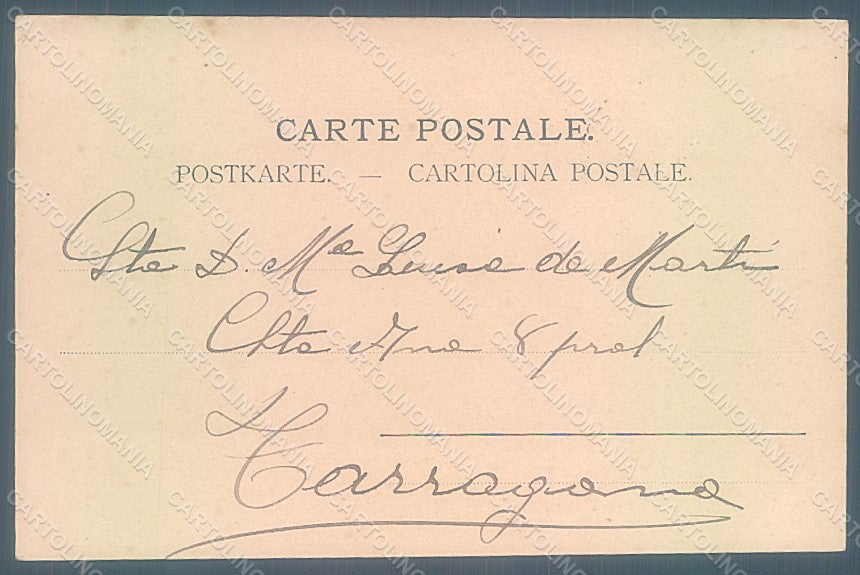 CARTE POSTALE.
POSTKARTE. — CARTOLINA POSTALE.
Sta D. Mª Luisa de Martí
Sta Ana 8 pral
Tarragona
CARTOLINOMANIA